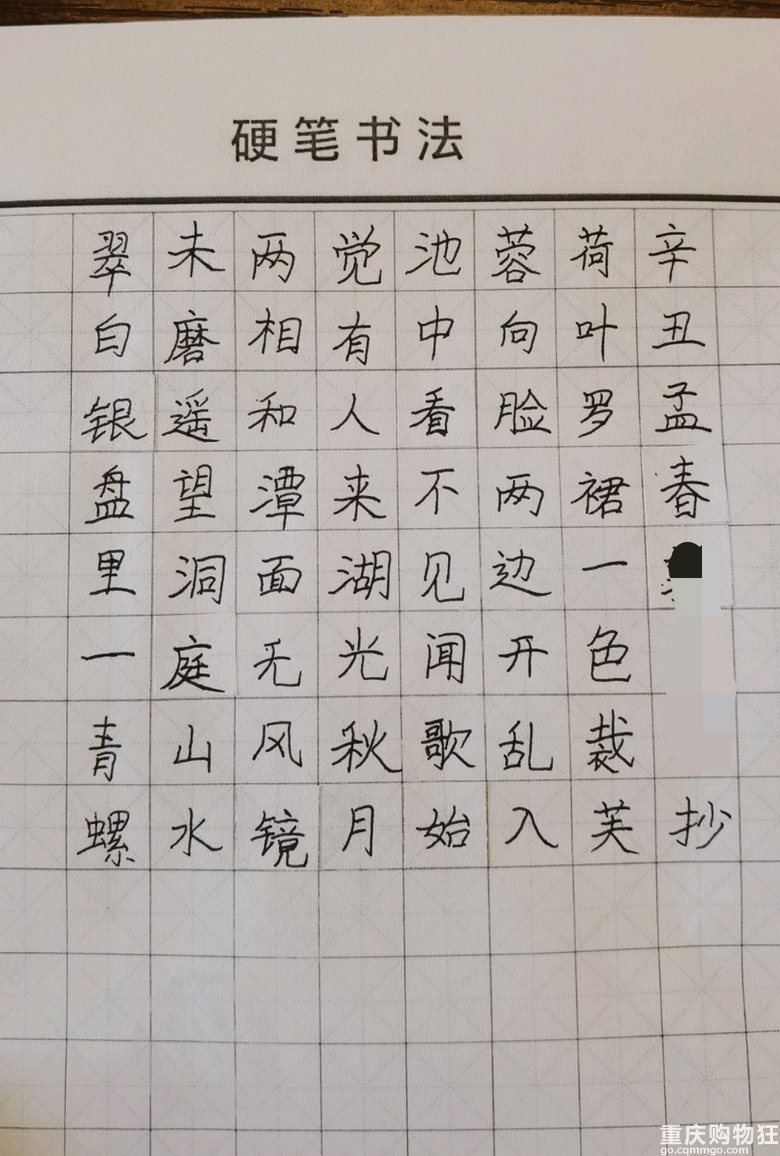 硬笔书法
辛丑孟春抄
荷叶罗裙一色裁芙
蓉向脸两边开乱入
池中看不见闻歌始
觉有人来湖光秋月
两相和潭面无风镜
未磨遥望洞庭山水
翠白银盘里一青螺
重庆购物狂
go.cqmmgo.com